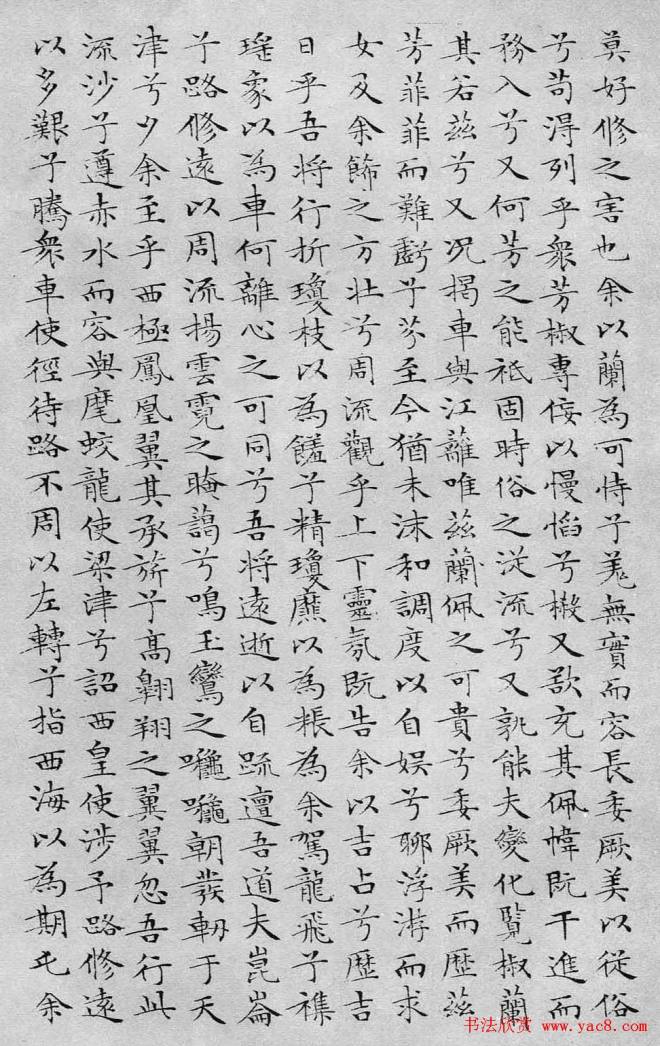 莫好修之害也余以蘭為可恃兮羌無實而容長委厥美以從俗
兮苟得列乎衆芳椒專佞以慢慆兮樧又欲充其佩幃既干進而
務入兮又何芳之能祗固時俗之從流兮又孰能夫變化覽椒蘭
其若茲兮又況揭車與江蘺唯茲蘭佩之可貴兮委厥美而歷茲
芳菲菲而難虧兮芬至今猶未沫和調度以自娱兮聊浮游而求
女及余飾之方壯兮周流觀乎上下靈氛既告余以吉占兮歷吉
日乎吾將行折瓊枝以為饈兮精瓊爢以為粻為余駕龍飛兮襍
瑤象以為車何離心之可同兮吾將遠逝以自疏邅吾道夫崑崙
兮路修遠以周流揚雲霓之晻藹兮鳴玉鸞之噰噰朝發軔于天
津兮夕余至乎西極鳳凰翼其承旂兮高翱翔之翼翼忽吾行此
流沙兮遵赤水而容與麾蛟龍使梁津兮詔西皇使涉予路修遠
以多艱兮騰衆車使徑待路不周以左轉兮指西海以為期屯余
书法欣赏 www.yac8.com